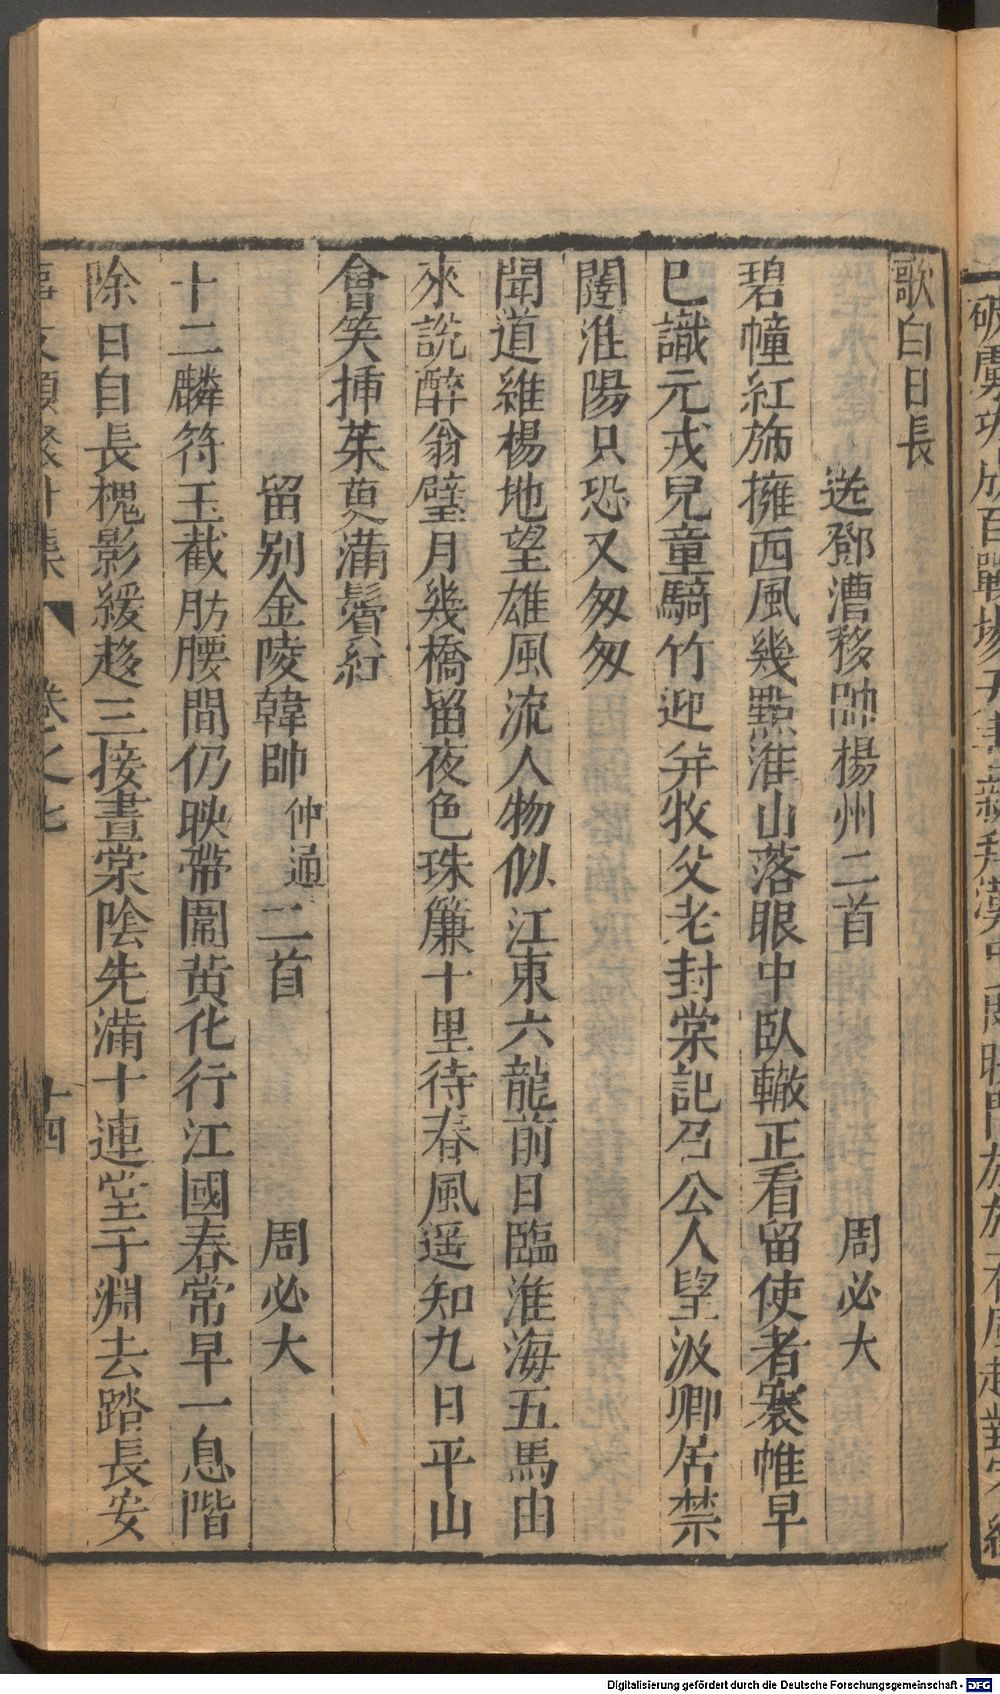 歌白日長
送鄧漕移帥楊州二首 周必大
碧幢紅斾擁西風幾點淮山落眼中臥轍正看留使者褰帷早
巳識元戎兒童騎竹迎并牧父老封棠記召公人望汲卿居禁
闥淮陽只恐又匆匆
聞道維楊地望雄風流人物似江東六龍前日臨淮海五馬由
來說醉翁璧月幾橋留夜色珠簾十里待春風遥知九日平山
會笑揷茱萸滿鬢紅
留别金陵韓帥仲通二首 周必大
十二麟符玉截肪腰間仍映帶圍黄化行江國春常早一息階
除日自長槐影緩趍三接晝棠陰先滿十連堂于淵去踏長安
事文類聚外集 卷之七 十四
破虜功成百戰場
Digitalisierung gefördert durch die Deutsche Forschungsgemeinschaft - DFG